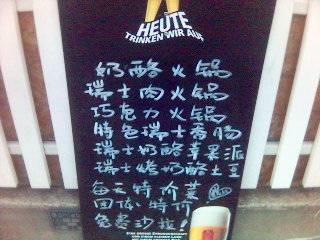 HEUTE
TRINKEN WIR AUF
奶酪火锅
瑞士肉火锅
巧克力火锅
特色瑞士香肠
瑞士奶酪苹果派
瑞士烤奶酪土豆
每天特价菜
团体特价
免费沙拉!